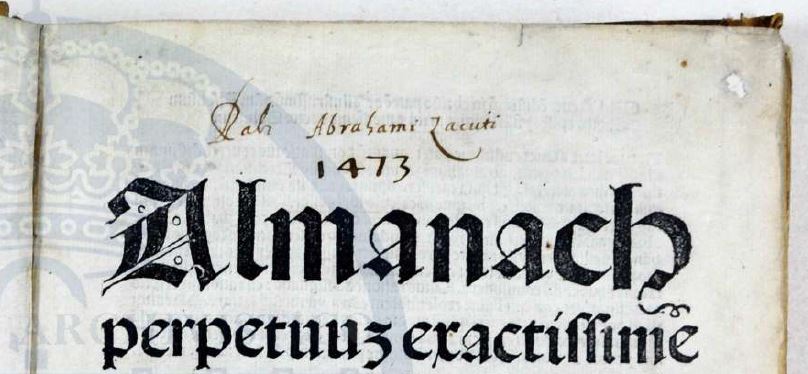 Rabi Abrahami Zacuti
1473
Almanach
perpetuuz exactissimē